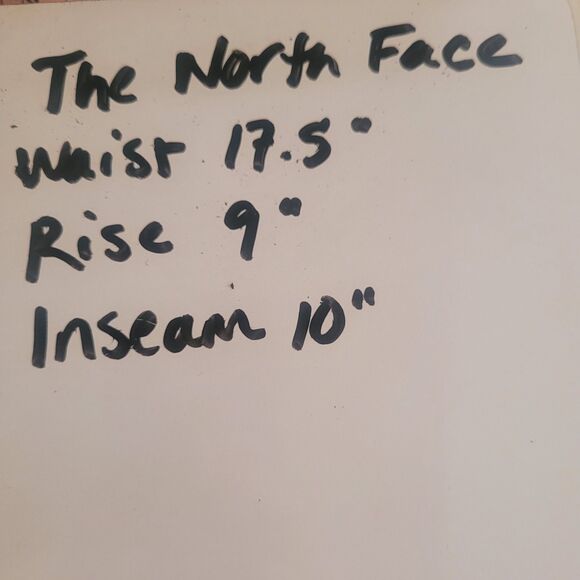 The North Face
Waist 17.5"
Rise 9"
Inseam 10"